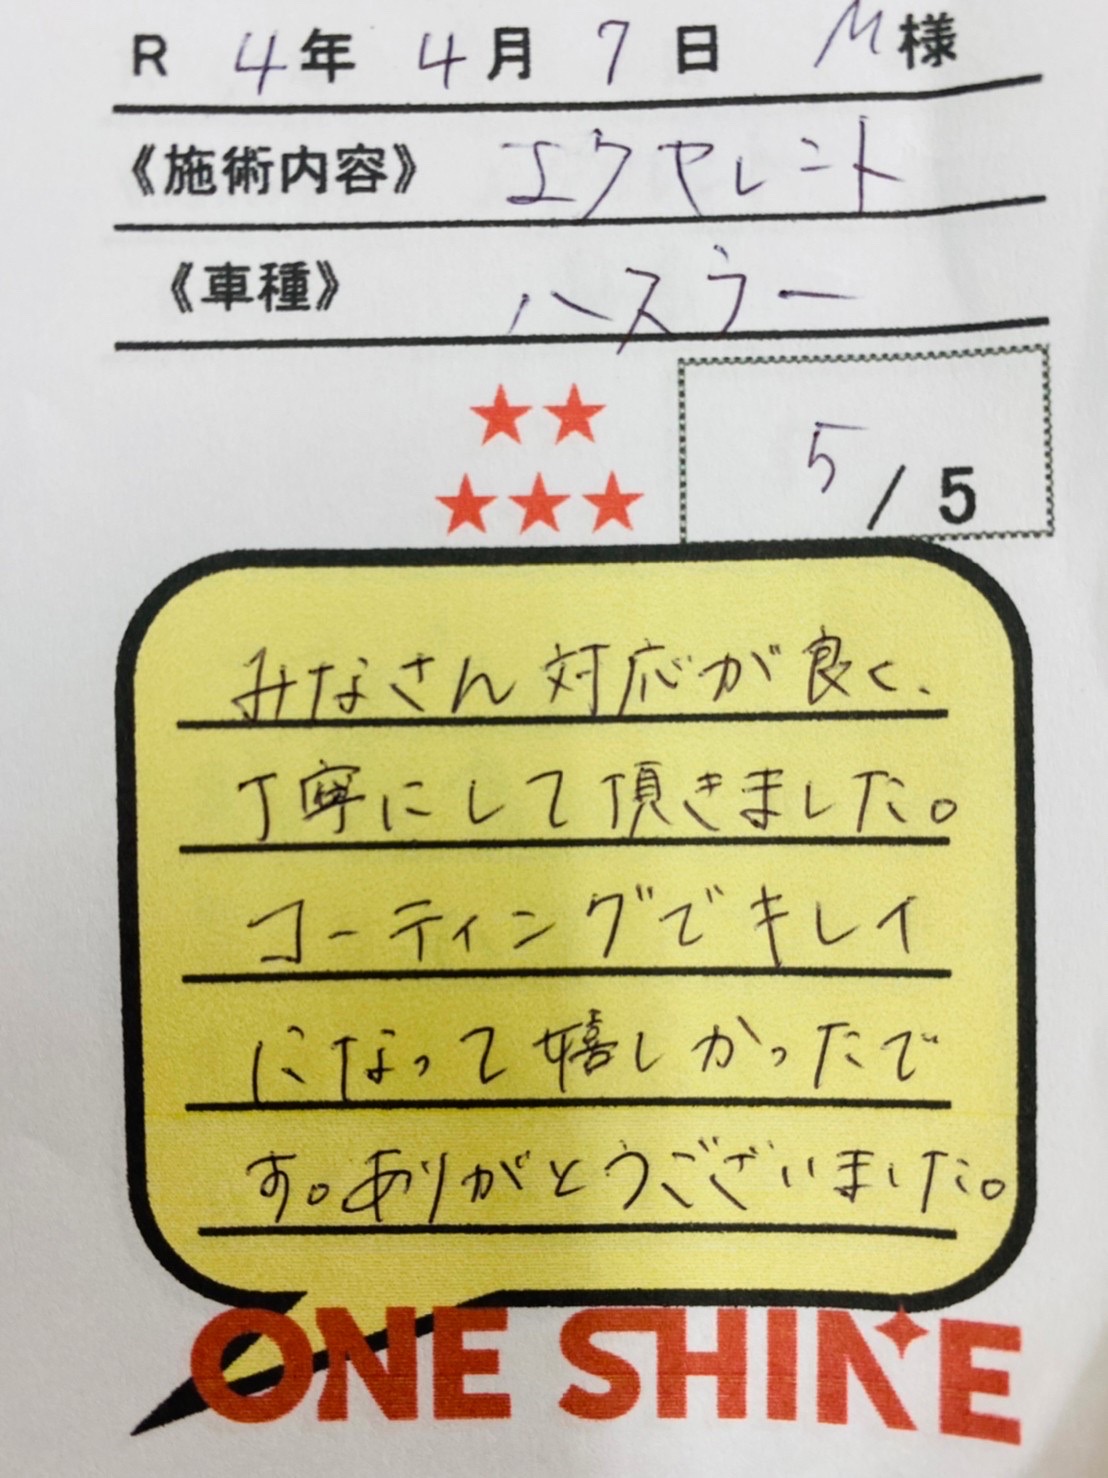 R 4年 4月 7日 M様
《施術内容》 エクセレント
《車種》 ハスラー
★★
★★★
5/5
みなさん対応が良く、
丁寧にして頂きました。
コーティングでキレイ
になって嬉しかったで
す。ありがとうございました。
ONE SHINE